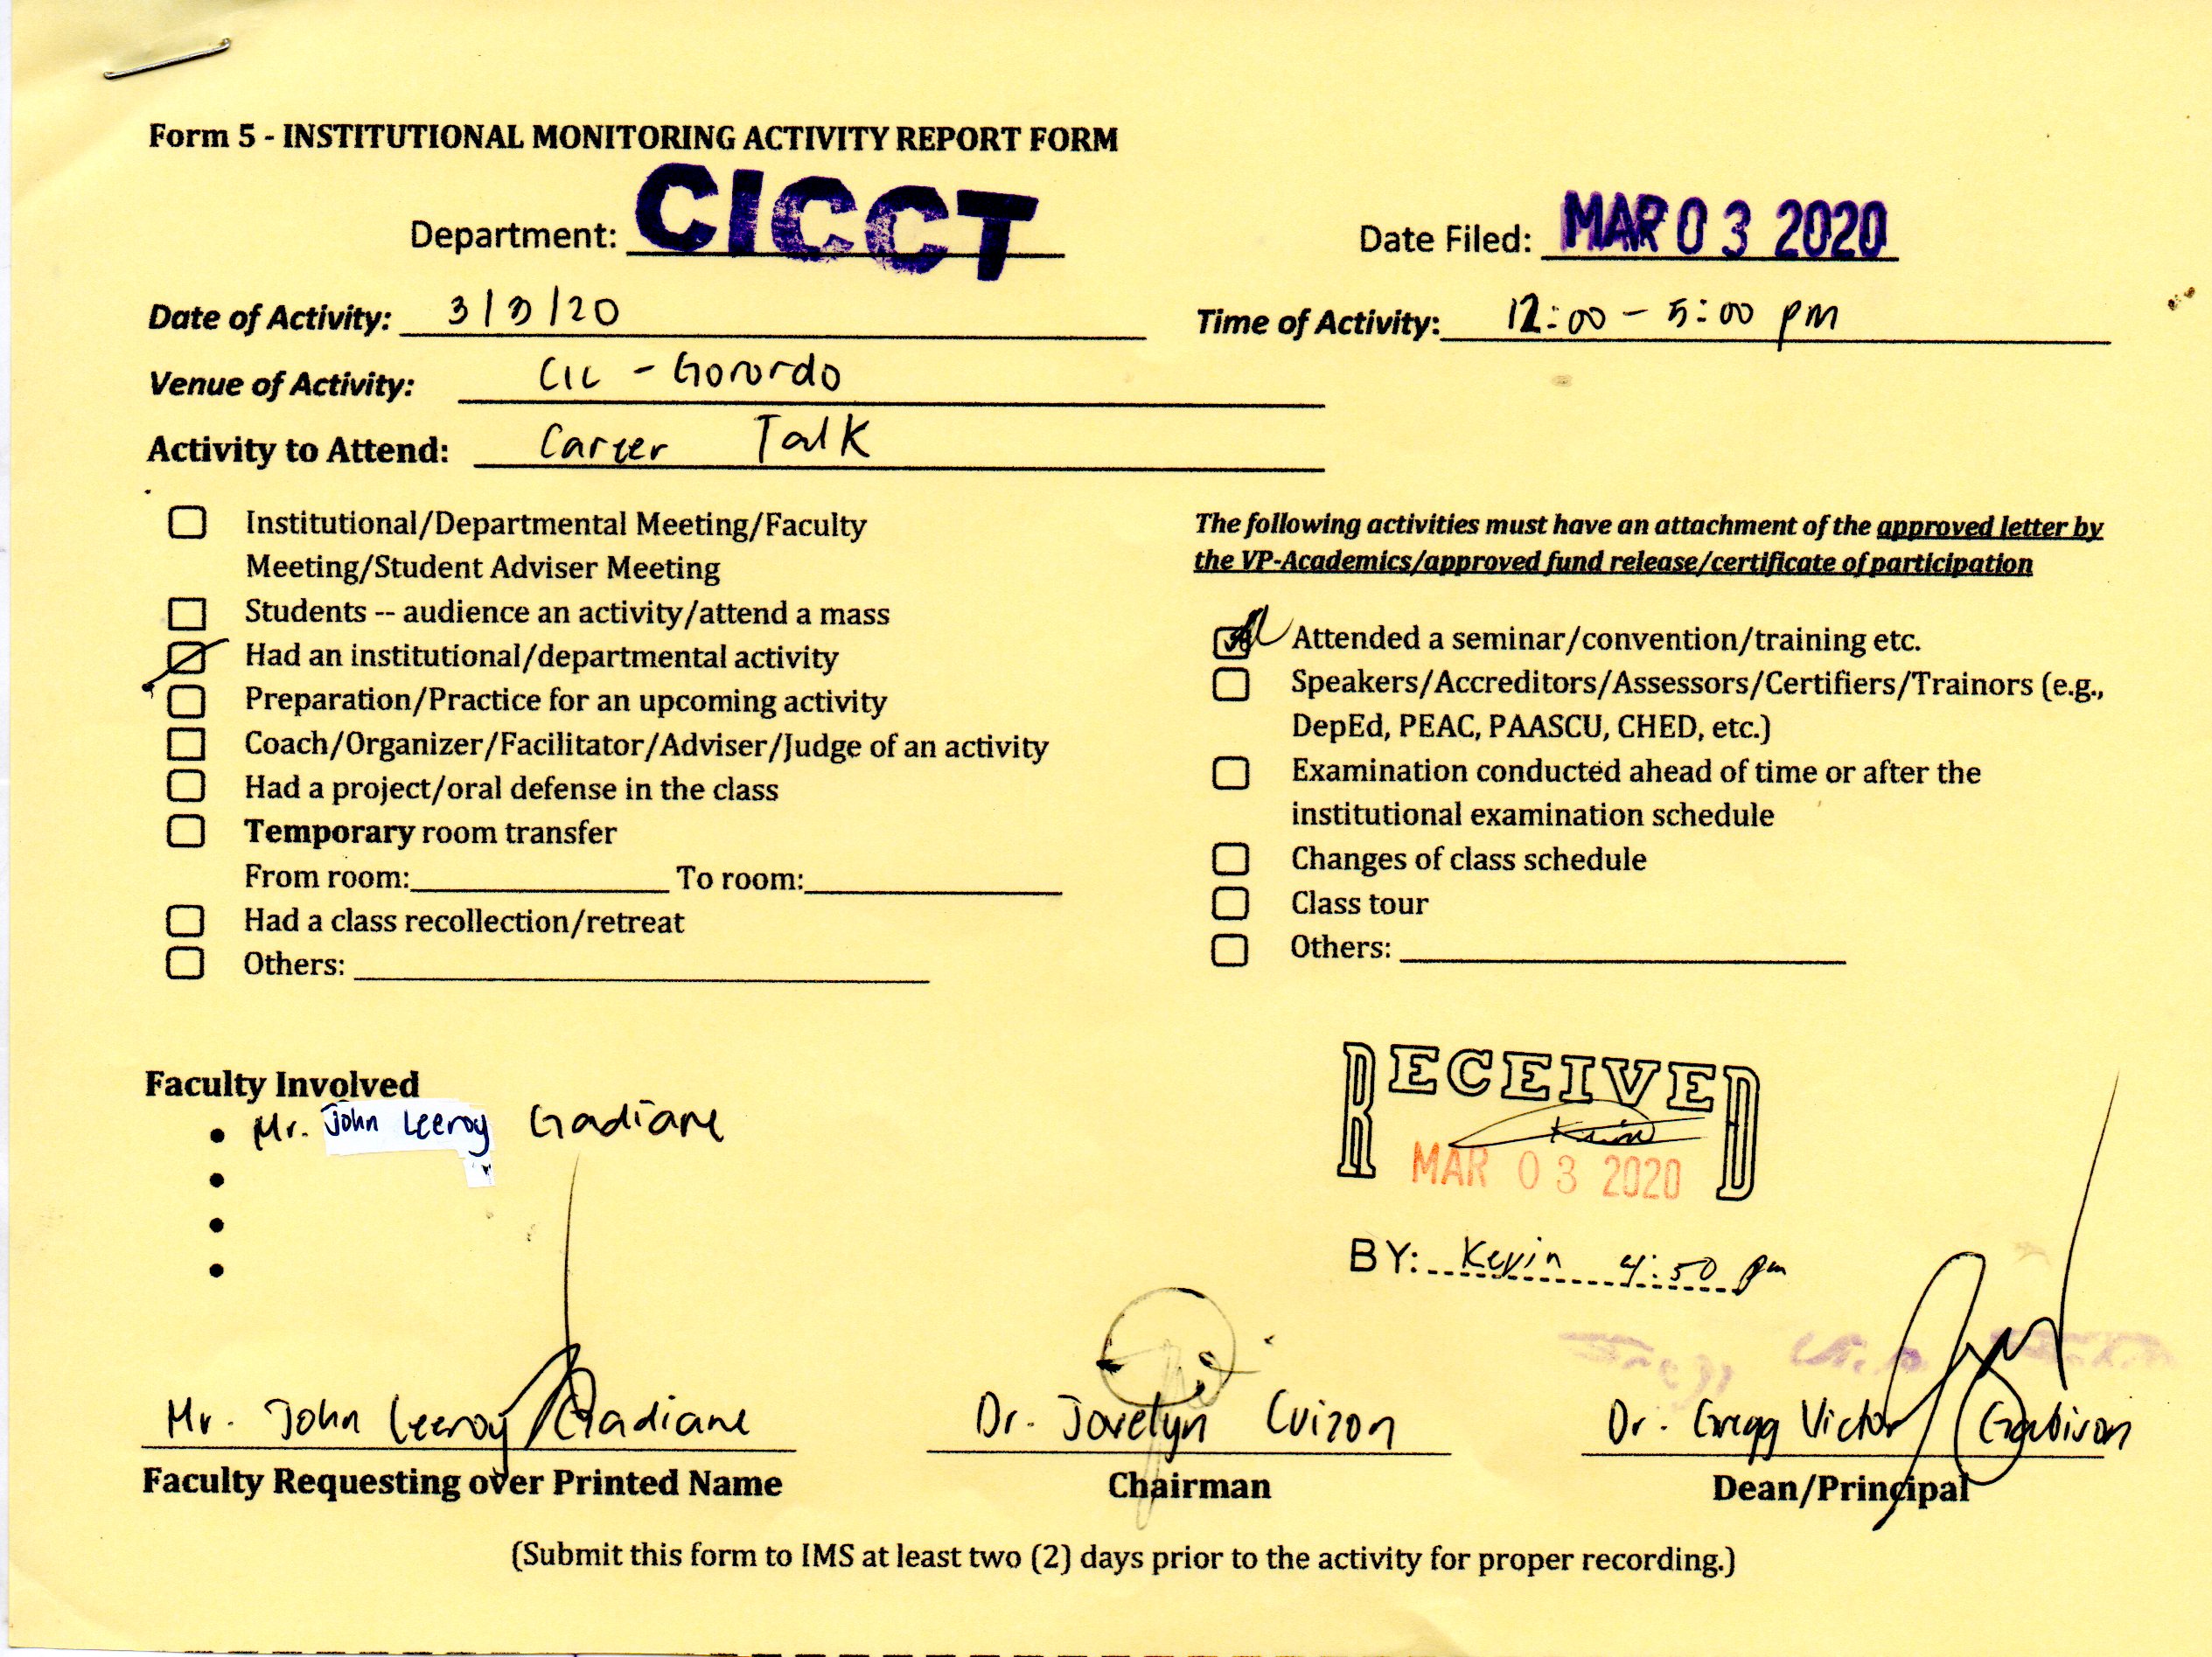 Form 5 - INSTITUTIONAL MONITORING ACTIVITY REPORT FORM
Department: CICCT
Date Filed: MAR 03 2020
Date of Activity: 3/3/20
Time of Activity: 12:00 - 5:00 pm
Venue of Activity: CIC - Gorordo
Activity to Attend: Career Talk
Institutional/Departmental Meeting/Faculty
Meeting/Student Adviser Meeting
Students -- audience an activity/attend a mass
Had an institutional/departmental activity
Preparation/Practice for an upcoming activity
Coach/Organizer/Facilitator/Adviser/Judge of an activity
Had a project/oral defense in the class
Temporary room transfer
From room: To room:
Had a class recollection/retreat
Others:
The following activities must have an attachment of the approved letter by
the VP-Academics/approved fund release/certificate of participation
Attended a seminar/convention/training etc.
Speakers/Accreditors/Assessors/Certifiers/Trainors (e.g.,
DepEd, PEAC, PAASCU, CHED, etc.)
Examination conducted ahead of time or after the
institutional examination schedule
Changes of class schedule
Class tour
Others:
Faculty Involved
• Mr. John Leeroy Gadiane
•
•
•
RECEIVED
MAR 03 2020
BY: Kevin 4:50 pm
Mr. John Leeroy Gadiane
Faculty Requesting over Printed Name
Dr. Jovelyn Cuizon
Chairman
Dr. Gregg Victor Gabison
Dean/Principal
(Submit this form to IMS at least two (2) days prior to the activity for proper recording.)